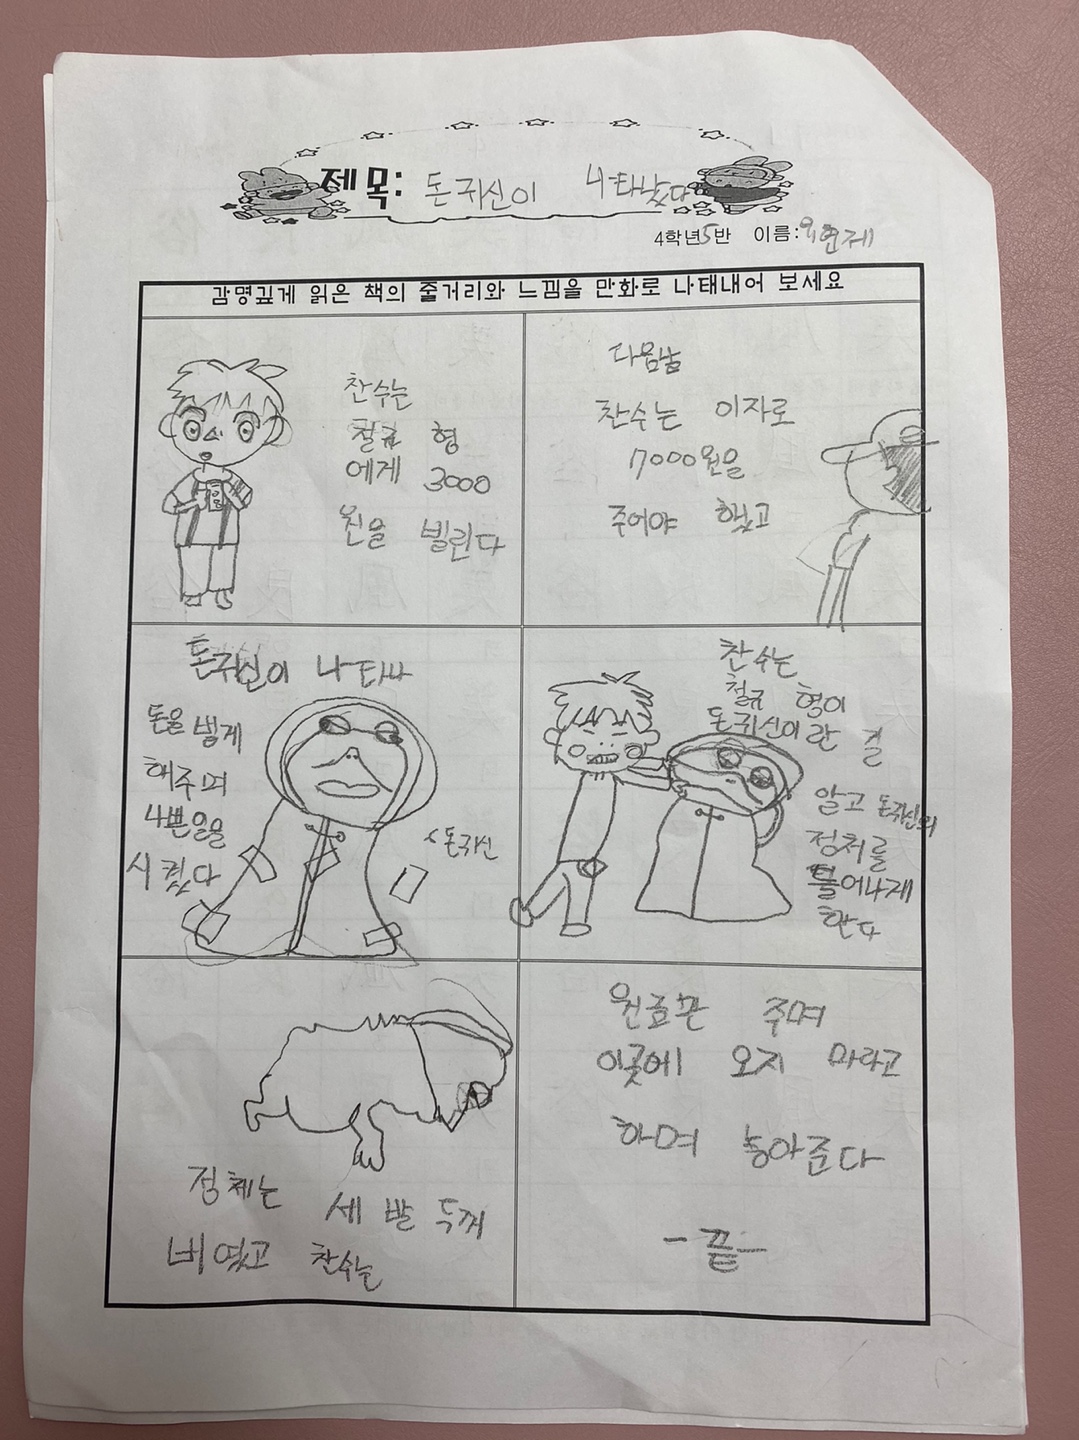 제목: 돈귀신이 나타났다
4학년 5반 이름:
감명깊게 읽은 책의 줄거리와 느낌을 만화로 나태내어 보세요
찬수는
철규 형
에게 3000
원을 빌린다
다음날
찬수는 이자로
7000원을
주어야 했고
돈귀신이 나타나
돈을 벌게
해주며
나쁜일을
시켰다
돈귀신
찬수는
철규 형이
돈귀신이란 걸
알고 돈귀신의
정처를
틀어나게
한다
정체는 세 발 두꺼
비였고 찬수는
원금만 주며
이곳에 오지 마라고
하며 놓아준다
-끝-